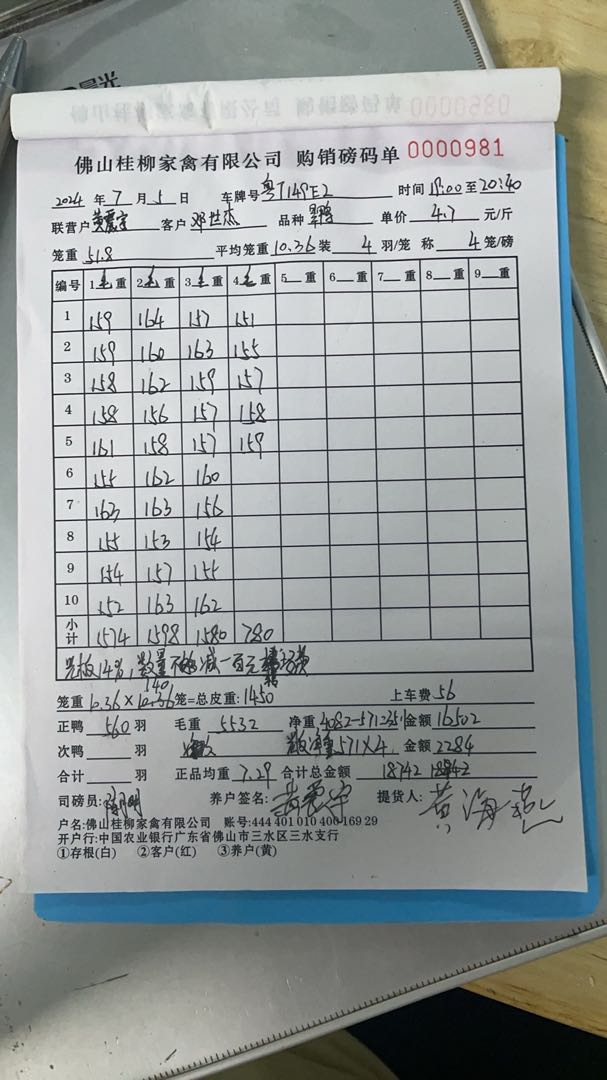 晨光
佛山桂柳家禽有限公司 购销磅码单 0000980
佛山桂柳家禽有限公司 购销磅码单 0000981
2024 年 7 月 5 日 车牌号 粤T149E2 时间 19:00 至 20:40
联营户 黄爱宇 客户 邓世杰 品种 单价 4.7 元/斤
笼重 51.8 平均笼重 10.36 装 4 羽/笼 称 4 笼/磅
编号 1 毛 重 2 毛 重 3 毛 重 4 毛 重 5 重 6 重 7 重 8 重 9 重
1 159 164 157 151
2 159 160 163 155
3 158 162 159 157
4 158 156 157 158
5 161 158 157 159
6 155 162 160
7 163 163 156
8 155 153 154
9 154 157 155
10 152 163 162
小计 1574 1598 1580 780
光板14%,数量不够减一百元
140
笼重 10.36 × 笼=总皮重: 1450 上车费 56
正鸭 560 羽 毛重 5532 净重 4082-571=3511 金额 16502
次鸭 羽 571×4 金额 2284
合计 羽 正品均重 7.29 合计总金额 18742
司磅员: 养户签名: 黄爱宇 提货人: 黄海燕
户名:佛山桂柳家禽有限公司 账号:444 401 010 400 169 29
开户行:中国农业银行广东省佛山市三水区三水支行
①存根(白) ②客户(红) ③养户(黄)